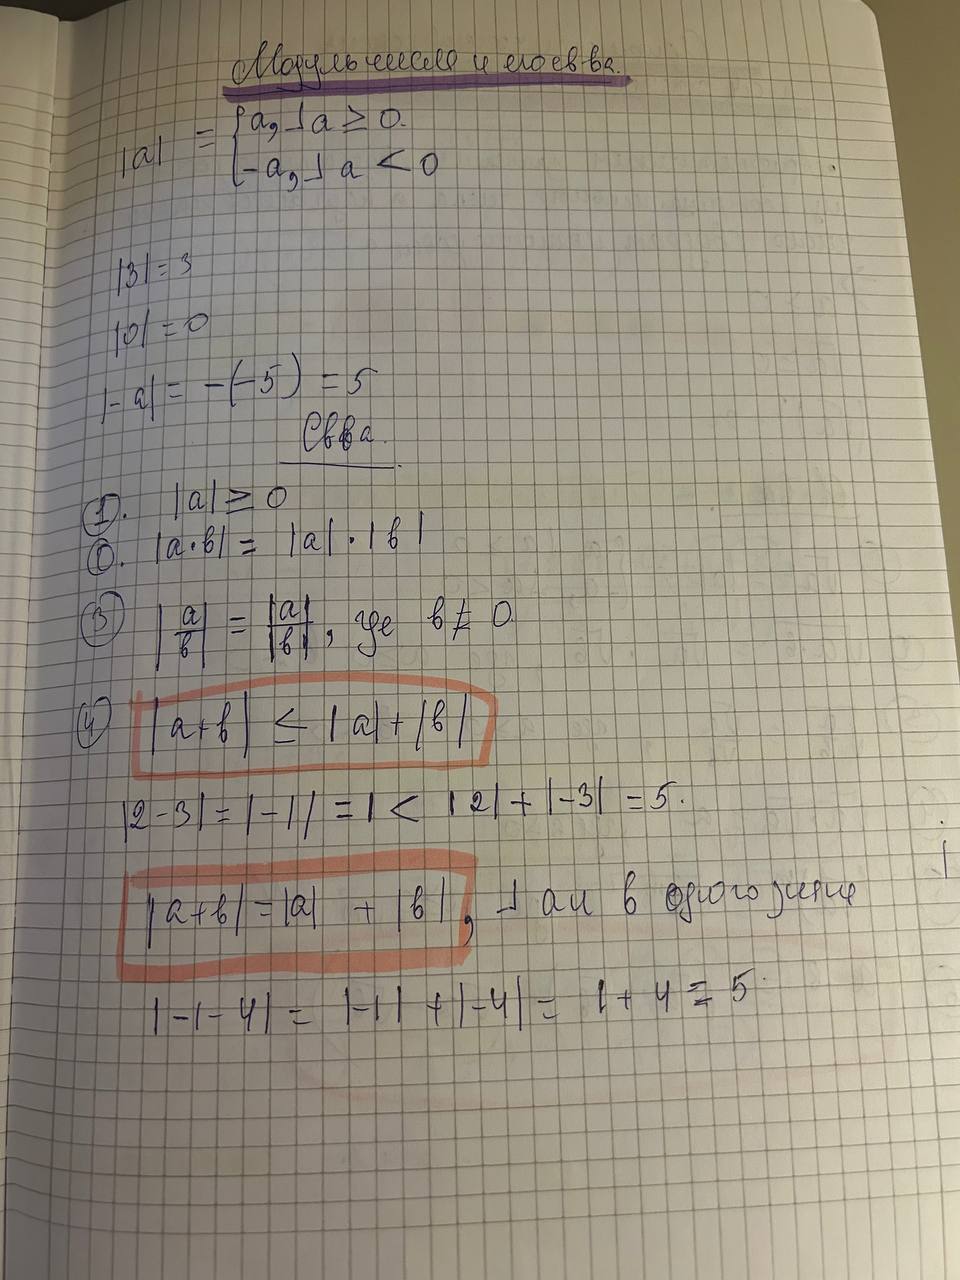 Модуль числа и его св-ва.
|a| = { a, ⅃ a ≥ 0.
{ -a, ⅃ a < 0
|3| = 3
|0| = 0
|-a| = -(-5) = 5
Св-ва.
①. |a| ≥ 0
②. |a·b| = |a|·|b|
③ |a/b| = |a|/|b|, где b ≠ 0.
④ |a+b| ≤ |a|+|b|
|2-3| = |-1| = 1 < |2| + |-3| = 5.
|a+b| = |a| + |b|, ⅃ a и b одного знака
|-1-4| = |-1| + |-4| = 1 + 4 = 5.